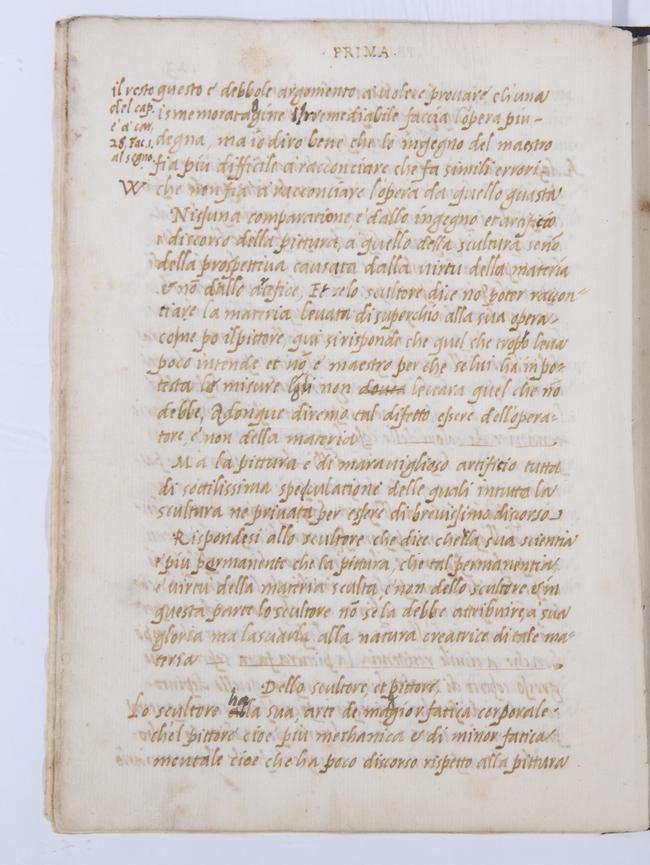 · PRIMA ·
il resto
del cap.
e' a' car.
28. fac. 1.
al segno
questo e debbole argomento a volere provare ch'una
ismemoratagine irremediabile faccia l'opera piu-
degna, ma io diro bene che lo ingegno del maestro
fia piu difficile a racconciare che fa simili errori,
che non fia a racconciare l'opera da quello guasta
Nissuna comparatione e dallo ingegno et artificio
e discorso della pittura, a quello della scultura se nō
della prospettiva causata dalla virtu della materia
e nō dallo artefice, Et se lo scultore dice nō poter raccon-
tiare la materia levata di superchio alla sua opera
come po il pittore, qui si risponde che quel che troppo leva
poco intende et nō e maestro perche se lui ha in po-
testa le misure egli non leverà quel che nō
debbe, Adonque diremo tal difetto essere dell'opera-
tore, e non della materia
Ma la pittura e di maraviglioso artificio tutta
di sottilissima speculatione delle quali in tutta la
scultura ne privata per essere di brevissimo discorso
Rispondesi allo scultore che dice che la sua scientia
e piu permanente che la pittura, che tal permanentia
e virtu della materia sculta e non dello scultore e in
questa parte lo scultore nō se la debbe attribuire, a sua
gloria ma lasciarla alla natura creatrice di tale ma-
teria
Dello scultore, et pittore,
Lo scultore ha la sua, arte de magior fatica corporale
che'l pittore cioe piu mechanica e di minor fatica
mentale cioe che ha poco discorso rispetto alla pittura